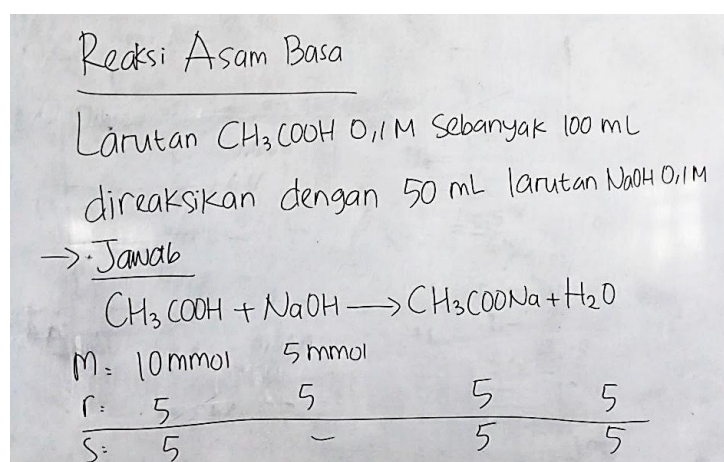 Reaksi Asam Basa
Larutan CH₃COOH 0,1 M Sebanyak 100 mL
direaksikan dengan 50 mL larutan NaOH 0,1 M
→ · Jawab
CH₃COOH + NaOH → CH₃COONa + H₂O
M: 10 mmol 5 mmol
r: 5 5 5 5
S: 5 – 5 5